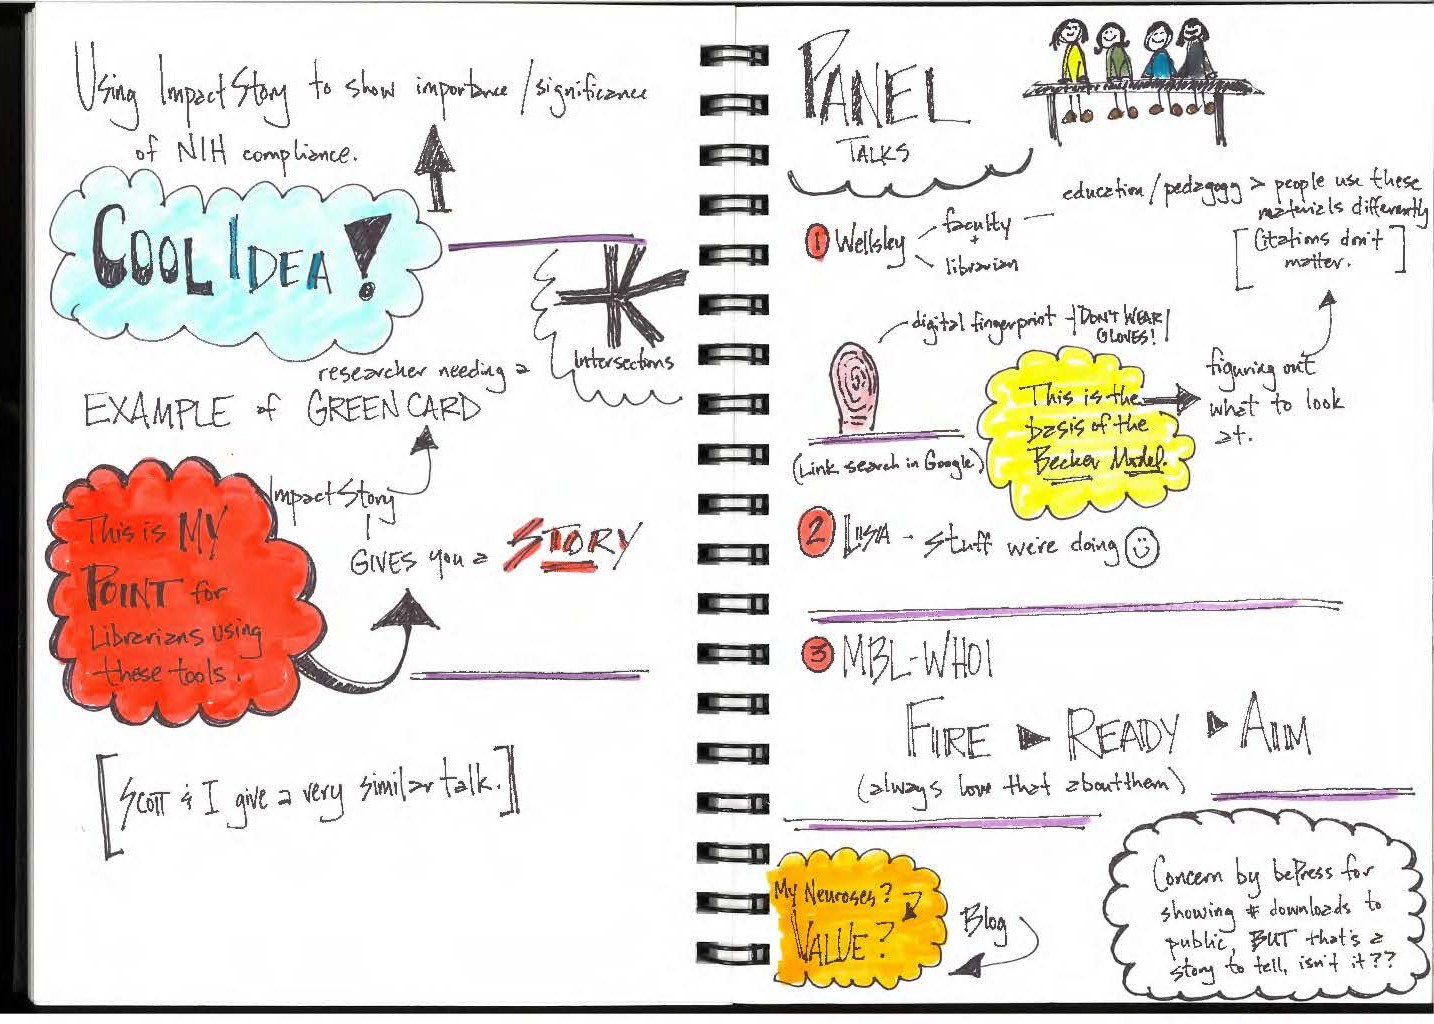 Using ImpactStory to show importance/significance
of NIH compliance.
COOL IDEA!
Intersections
researcher needing a
EXAMPLE of GREEN CARD
ImpactStory
GIVES you a STORY
This is MY
POINT for
Librarians using
these tools.
[Scott & I give a very similar talk.]
PANEL
TALKS
1 Wellsley
faculty
+
librarian
education/pedagogy > people use these
materials differently
[Citations don't
matter.]
digital fingerprint - DON'T WEAR
GLOVES!
(Link search in Google)
This is the
basis of the
Becker Model.
figuring out
what to look
at.
2 LISA - stuff we're doing
3 MBL-WHOI
FIRE ▶ READY ▶ AIM
(always love that about them)
My Neuroses?
VALUE?
Blog
Concern by bePress for
showing # downloads to
public, BUT that's a
story to tell, isn't it??